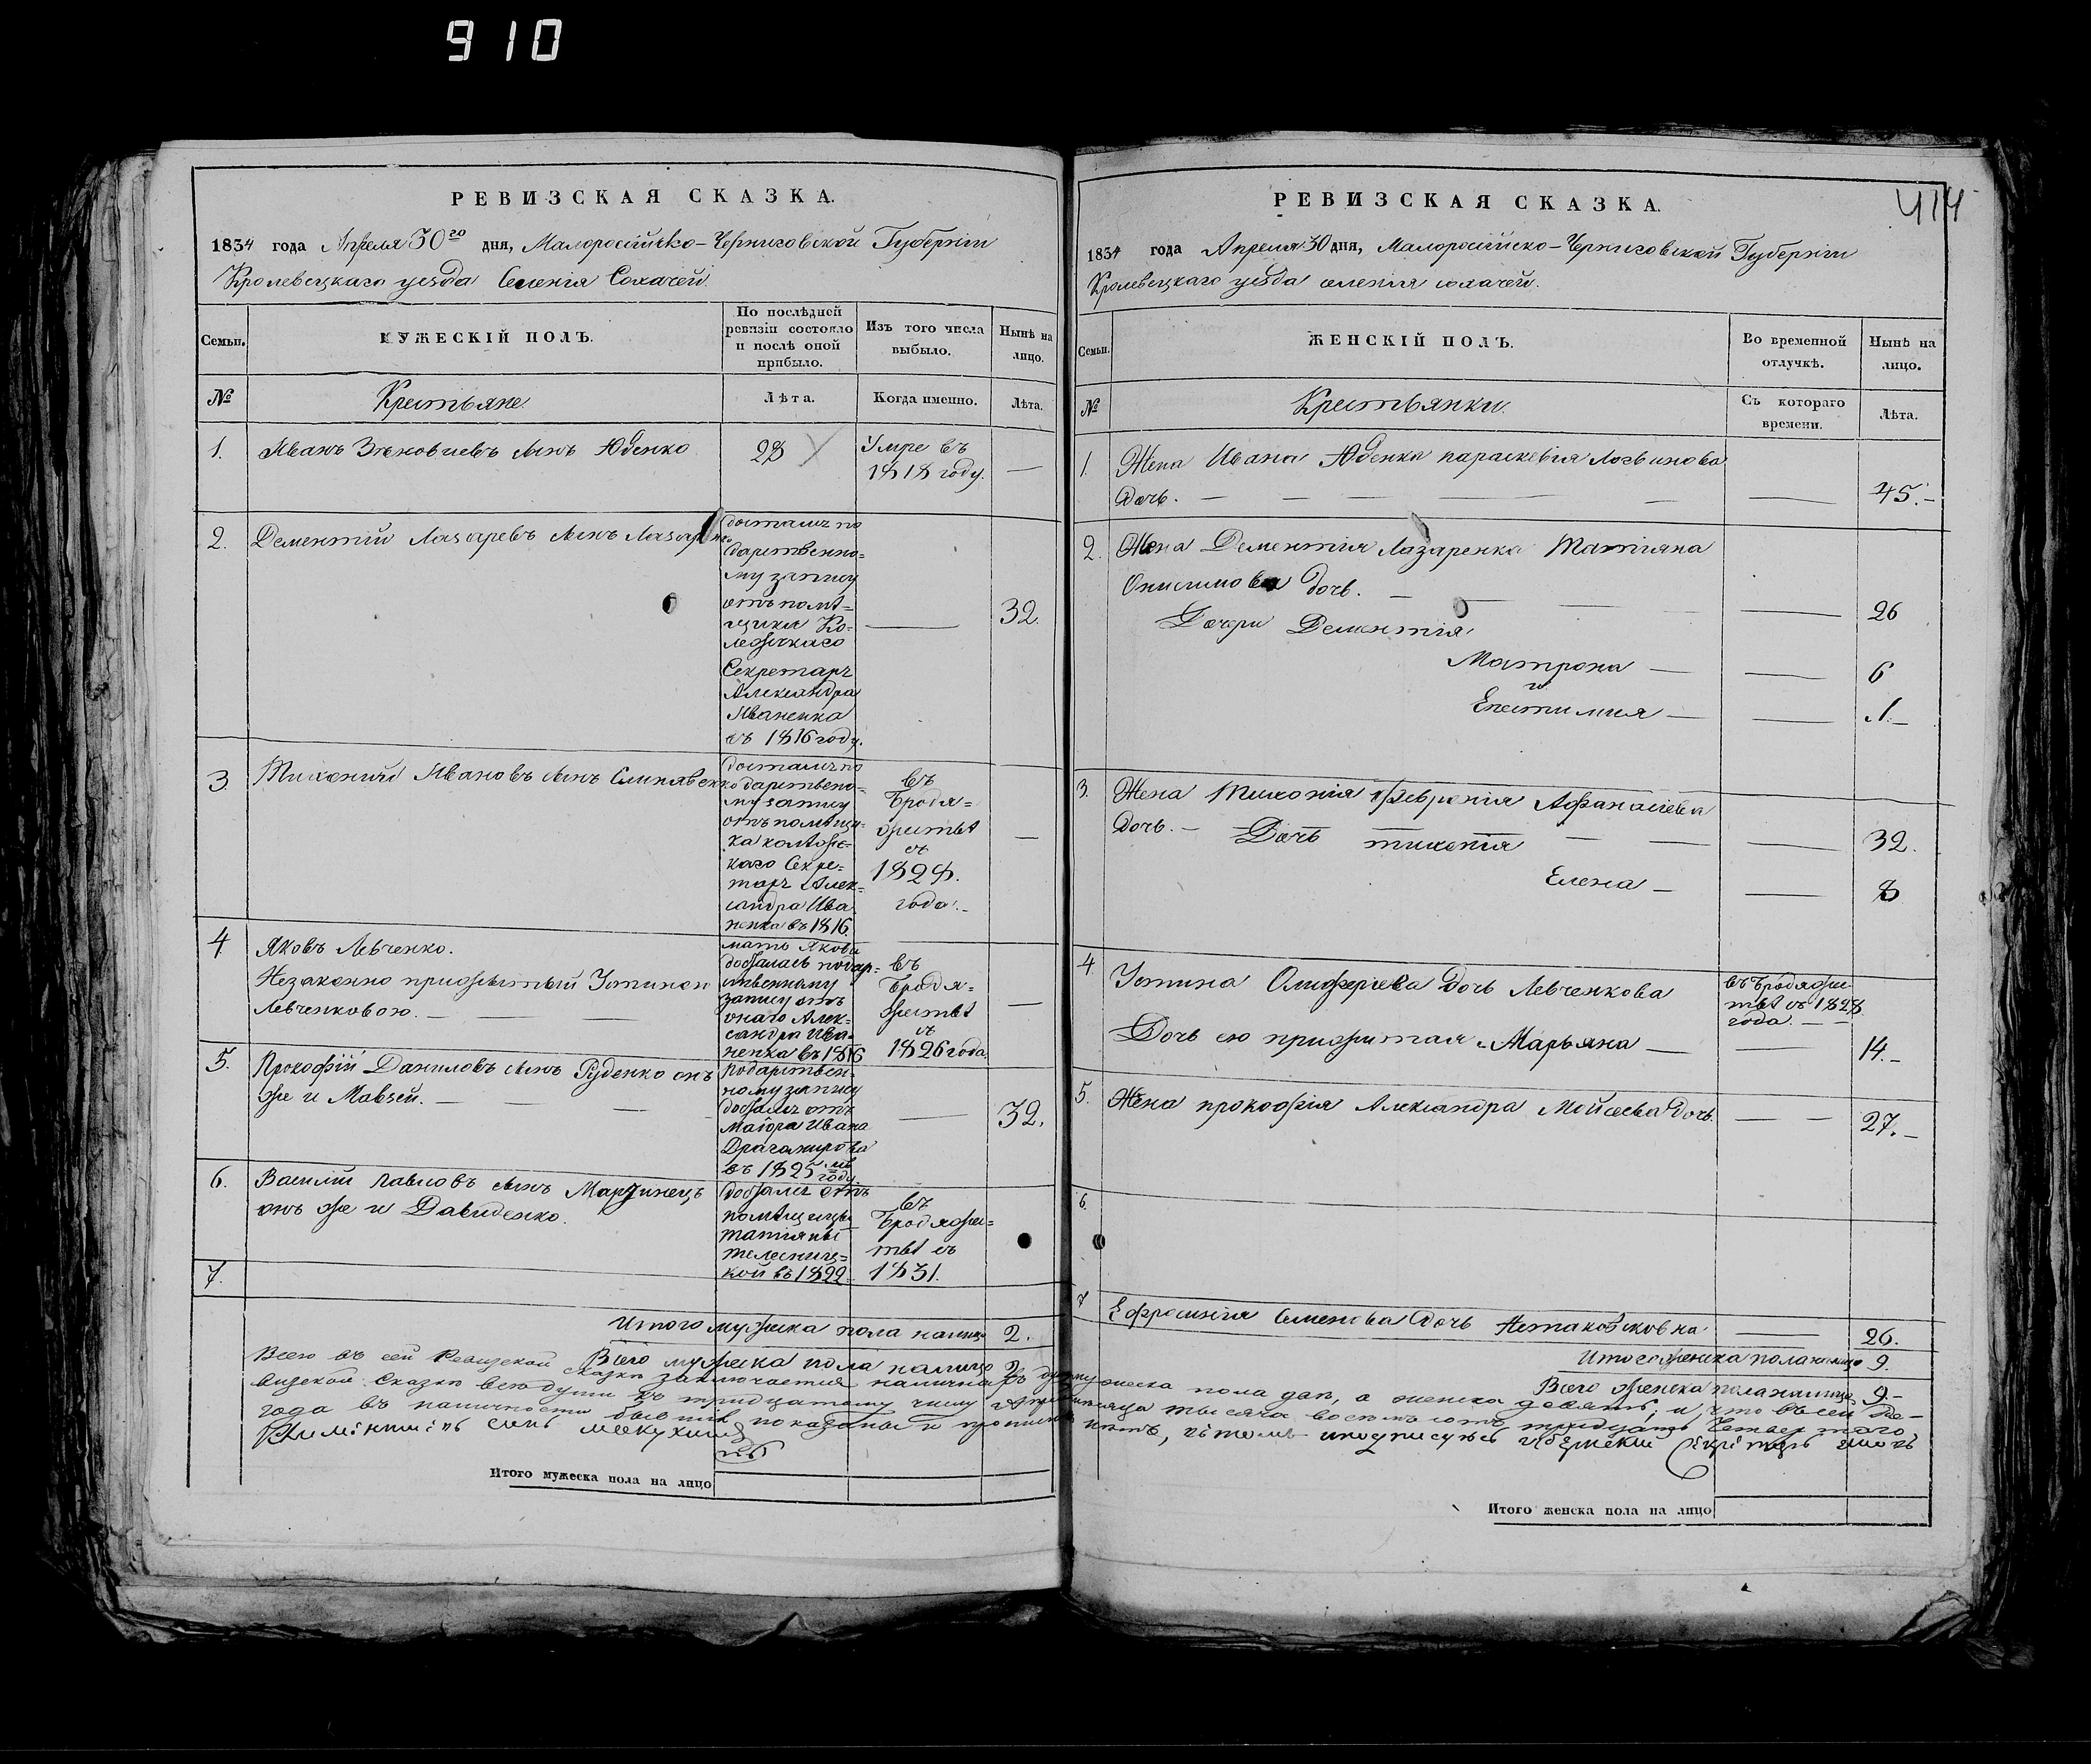 910
РЕВИЗСКАЯ СКАЗКА.
1834 года Апреля 30го дня, Малоросійско-Черниговской Губерніи
Кролевецкаго уезда Селенія Сохачей.
Семьи.
МУЖЕСКІЙ ПОЛЪ.
По послѣдней
ревизіи состояло
и послѣ оной
прибыло.
Изъ того числа
выбыло.
Нынѣ на
лицо.
№
Крестьяне.
Лѣта.
Когда именно.
Лѣта.
1.
Иванъ Зѣновіевъ сынъ Юденко
28
Умре въ
1818 году.
2.
Дементій Лазаревъ сынъ
достался по
дарственно=
му запису
отъ помѣ=
щика Ко=
лежскаго
Секретаря
Александра
Иваненка
въ 1816 году.
32.
3.
Тихоній Ивановъ сынъ
достался по
дарствено=
му запису
отъ помѣщи=
ка колѣжс=
каго Секре=
таря Алек=
сандра Ива
ненка въ 1816.
въ
Бродя=
жествѣ
съ
1828.
года.
4.
Яковъ Левченко.
Незаконно прижитый Устиной
Левченковою.
мать Якова
досталась подар=
ственному
запису отъ
онаго Алек=
сандра Ива=
ненка въ 1816
въ
Бродя=
жествѣ
съ
1826 года.
5.
Прокофій Даниловъ сынъ Руденко онъ
же и Мавзей.
Подарствен=
ному запису
достался отъ
Маіора Ивана
Драгомирова
въ 1825 мъ
году.
32.
6.
Василій Павловъ сынъ Мартинецъ
онъ же и Давиденко.
достался отъ
помѣщицы
Татіяны
кой въ 1822
въ
Бродяже=
твѣ съ
1831.
7.
Итого мужеска пола налицо 2.
Всего мужеска пола налицо 2
Итого мужеска пола на лицо
414
РЕВИЗСКАЯ СКАЗКА.
1834 года Апреля 30 дня, Малоросійско-Черниговской Губерніи
Кролевецкаго уезда селенія сохачей.
Семьи.
ЖЕНСКІЙ ПОЛЪ.
Во временной
отлучкѣ.
Нынѣ на
лицо.
№
Крестьянки.
Съ котораго
времени.
Лѣта.
1.
Жена Ивана Юденка параскевія Логвинова
Дочь.
45.
2.
Жена Дементія Лазаренка Татіяна
Онисимова дочь.
26
Дочери Дементія
Матрона
6
и
Епистимия
1.
3.
Жена Тихонія Февронія Афанасіева
Дочь.
32.
Дочь тихонія
Елена
8
4.
Устина Олиферіева Дочь Левченкова
въ Бродяже
твѣ съ 1828
года.
Дочь ею прижитая Марьяна
14.
5.
Жена прокофія Александра Мойсеева Дочь.
27.
6.
7
Ефросинія Семенова Дочь
26.
Итого женска пола налицо 9.
Всего женска пола налицо 9.
Всего въ сей Ревизской сказки заключается налична мужеска пола два, а женска девять; и что въ сей Ре-
визской сказки всѣ души къ тридцатому числу Апреля месяца тысяча восемь сотъ тридцать Четвертого
года въ наличности бывшие показаны и прописныхъ нѣтъ, въ томъ и подписуюсь Губернскій Секретарь
Итого женска пола на лицо